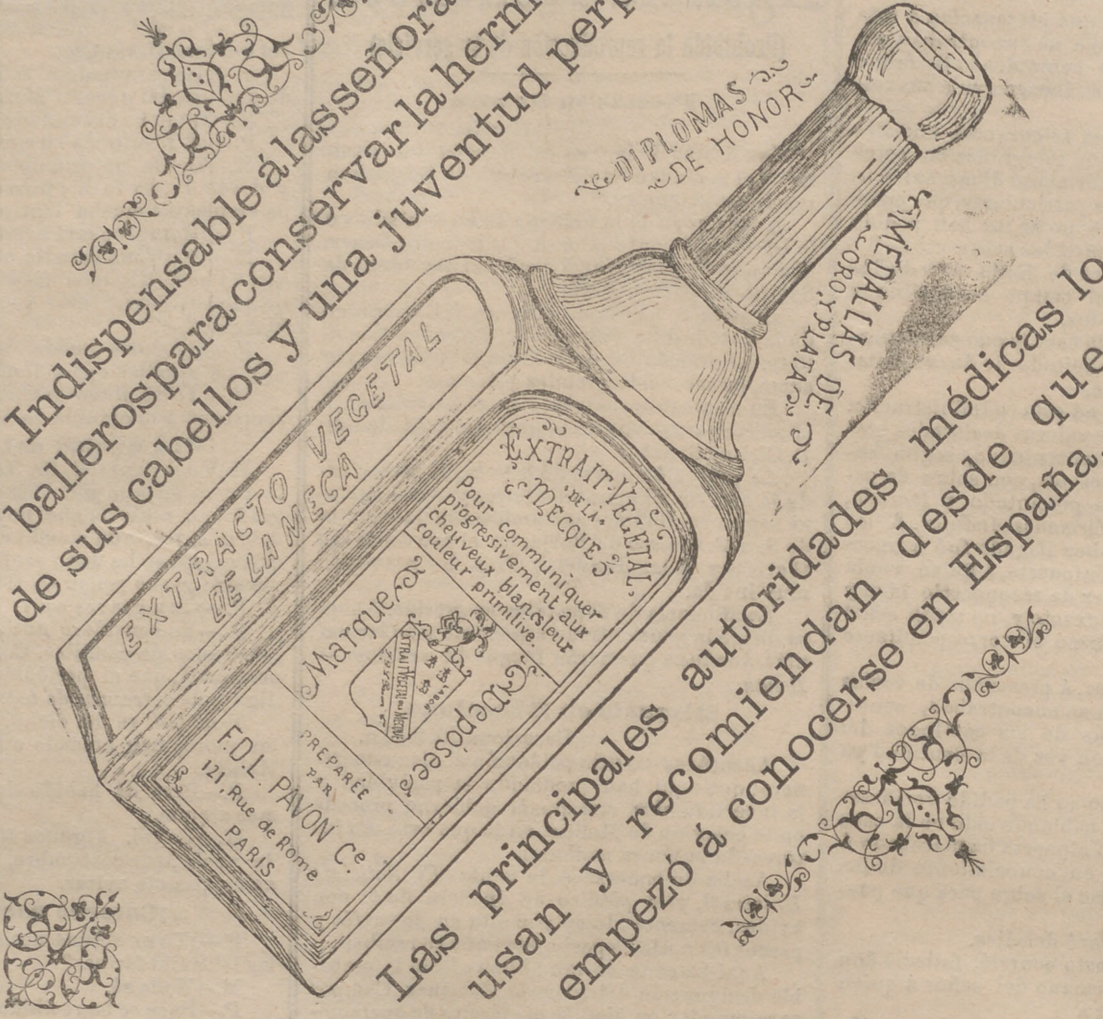 Indispensable á las señora
balleros para conservar la herm
de sus cabellos y una juventud perp
DIPLOMAS
DE HONOR
MEDALLAS DE
ORO Y PLATA
EXTRACTO VEGETAL
DE LA MECA
EXTRAIT-VÉGETAL,
DE LA
MECQUE
Pour communiquer
progressivement aux
cheuveux blancsleur
couleur primitive.
Marque
Déposée
EXTRAIT VEGETAL DU MECQUE
PREPARÉE
PAR
F.D.L. PAVON Ce.
121, Rue de Rome
PARIS
Las principales autoridades médicas lo
usan y recomiendan desde que
empezó á conocerse en España,